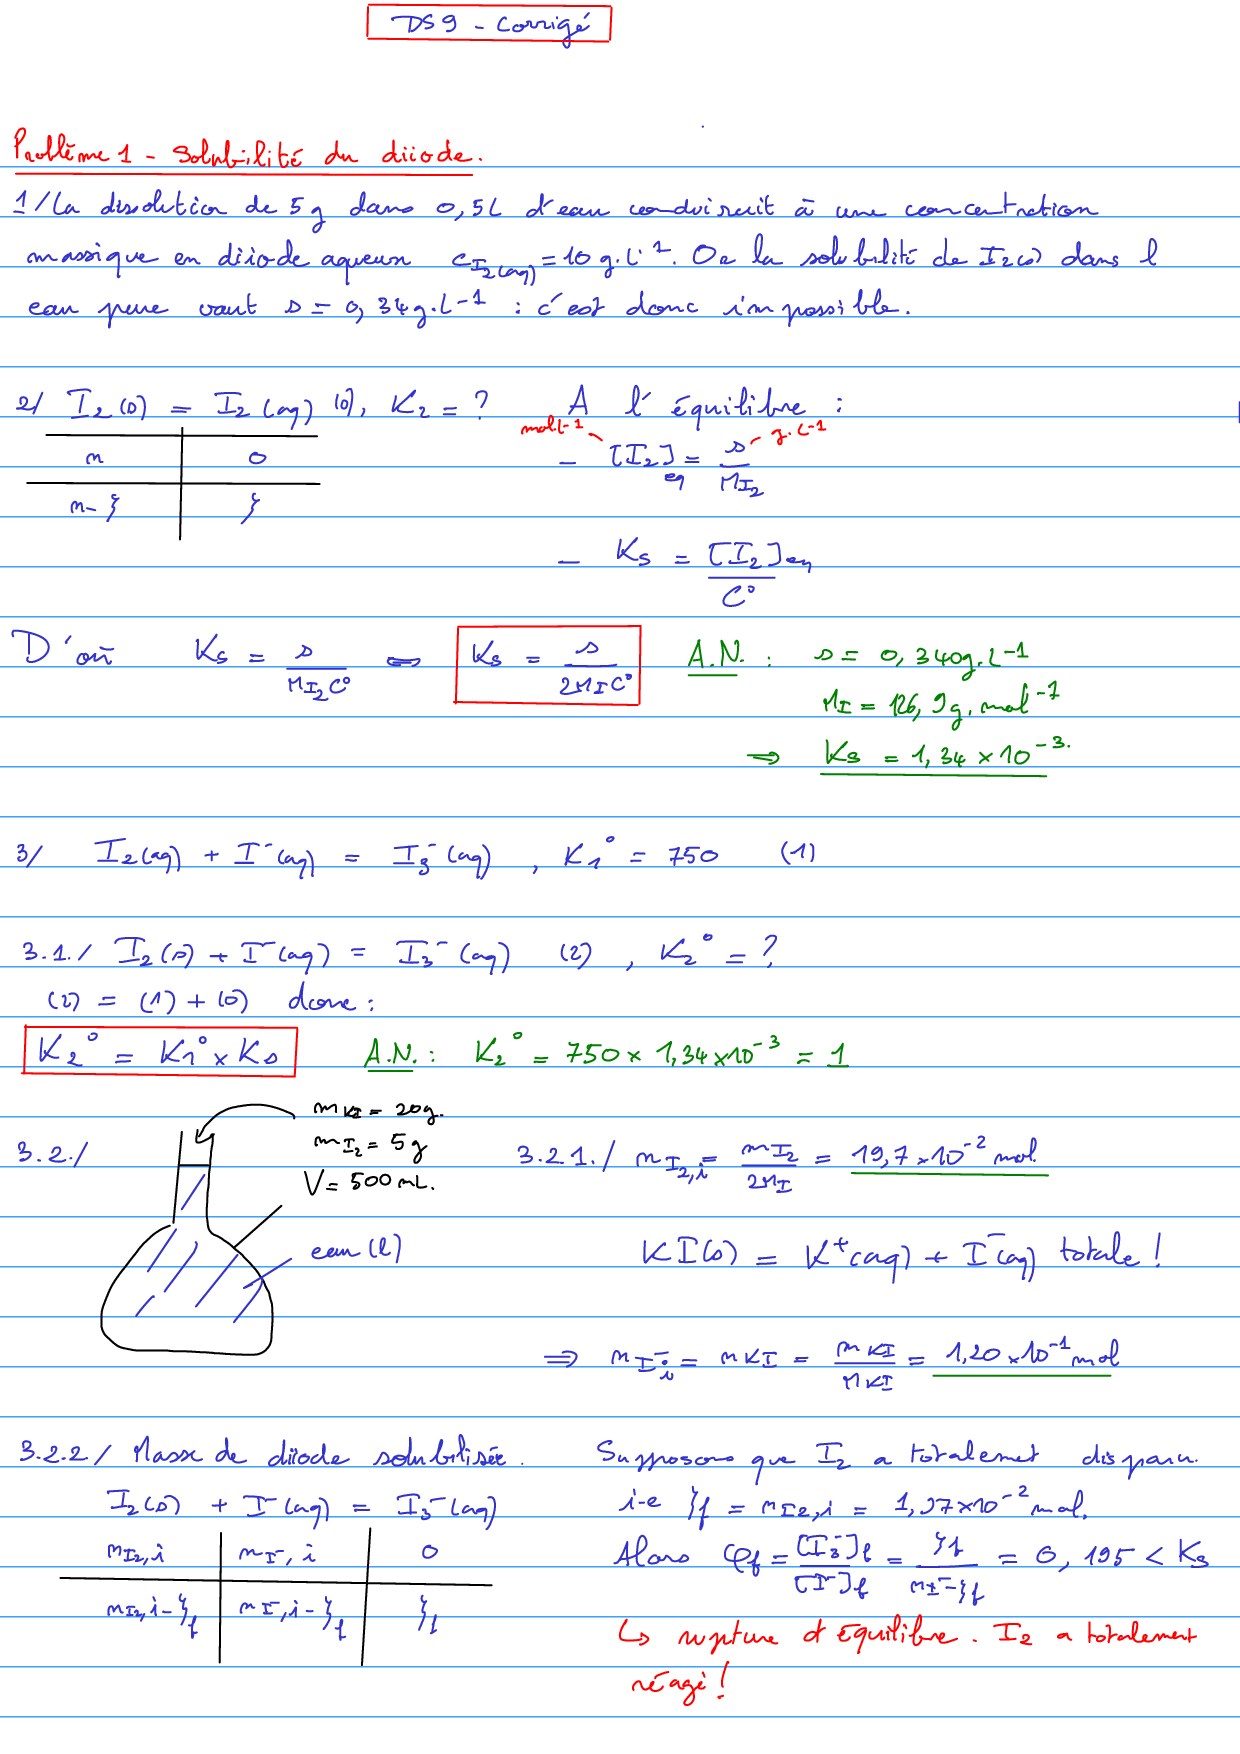 DS9 - Corrigé
Problème 1 - Solubilité du diiode.
1/ La dissolution de 5g dans 0,5L d'eau conduirait à une concentration
massique en diiode aqueux c_{I2(aq)} = 10 g.L^-1. Or la solubilité de I2(s) dans l
eau pure vaut s = 0,34g.L-1 : c'est donc impossible.
2/ I2(s) = I2(aq) (0), K2 = ? A l'équilibre :
mol.L-1 g.L-1
n 0
- [I2]eq = s/M_{I2}
n-ξ ξ
- Ks = [I2]eq/C°
D'où Ks = s/(M_{I2}C°) ⇔ Ks = s/(2M_I C°) A.N. : s = 0,340g.L-1
M_I = 126,9g.mol^-1
⇒ Ks = 1,34×10^-3.
3/ I2(aq) + I^-(aq) = I3^-(aq), K1° = 750 (1)
3.1./ I2(s) + I^-(aq) = I3^-(aq) (2), K2° = ?
(2) = (1) + (0) donc :
K2° = K1° × Ks A.N. : K2° = 750 × 1,34×10^-3 = 1
m_{KI} = 20g.
m_{I2} = 5g
V = 500mL.
eau(l)
3.2./ 3.2.1./ n_{I2,i} = m_{I2}/(2M_I) = 19,7×10^-2 mol.
KI(s) = K^+(aq) + I^-(aq) totale !
⇒ n_{I^-,i} = n_{KI} = m_{KI}/M_{KI} = 1,20×10^-1 mol
3.2.2/ Masse de diiode solubilisée. Supposons que I2 a totalement disparu.
I2(s) + I^-(aq) = I3^-(aq) i-e ξf = n_{I2,i} = 1,97×10^-2 mol.
n_{I2,i} n_{I^-,i} 0
Alors Qf = [I3^-]f/[I^-]f = ξf/(n_{I^-}-ξf) = 0,195 < Ks
n_{I2,i}-ξf n_{I^-,i}-ξf ξf
↳ rupture d'équilibre. I2 a totalement
réagi !